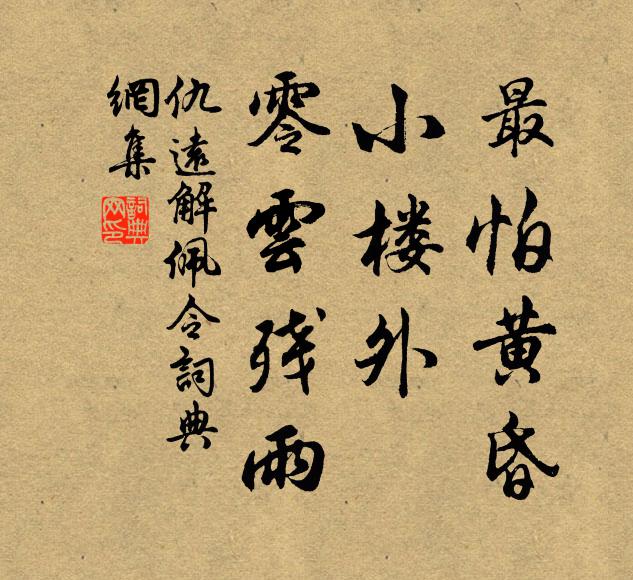 最怕黄昏
小楼外
零雲残雨
仇遠解佩令詞典
網集
詞典
网印